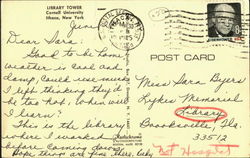 LIBRARY TOWER
Cornell University
Ithaca, New York
June
Dear Sara:
Good to be home,
weather is cool and
damp, Could use undies
I left thinking they'd
be too hot. When will
I learn?
This is the library
where I worked
before coming down.
Hope things are fine there,
POST CARD
Miss Sara Byers
Lykes Memorial
Library
Brooksville, Fla.
33512
Not Hospital